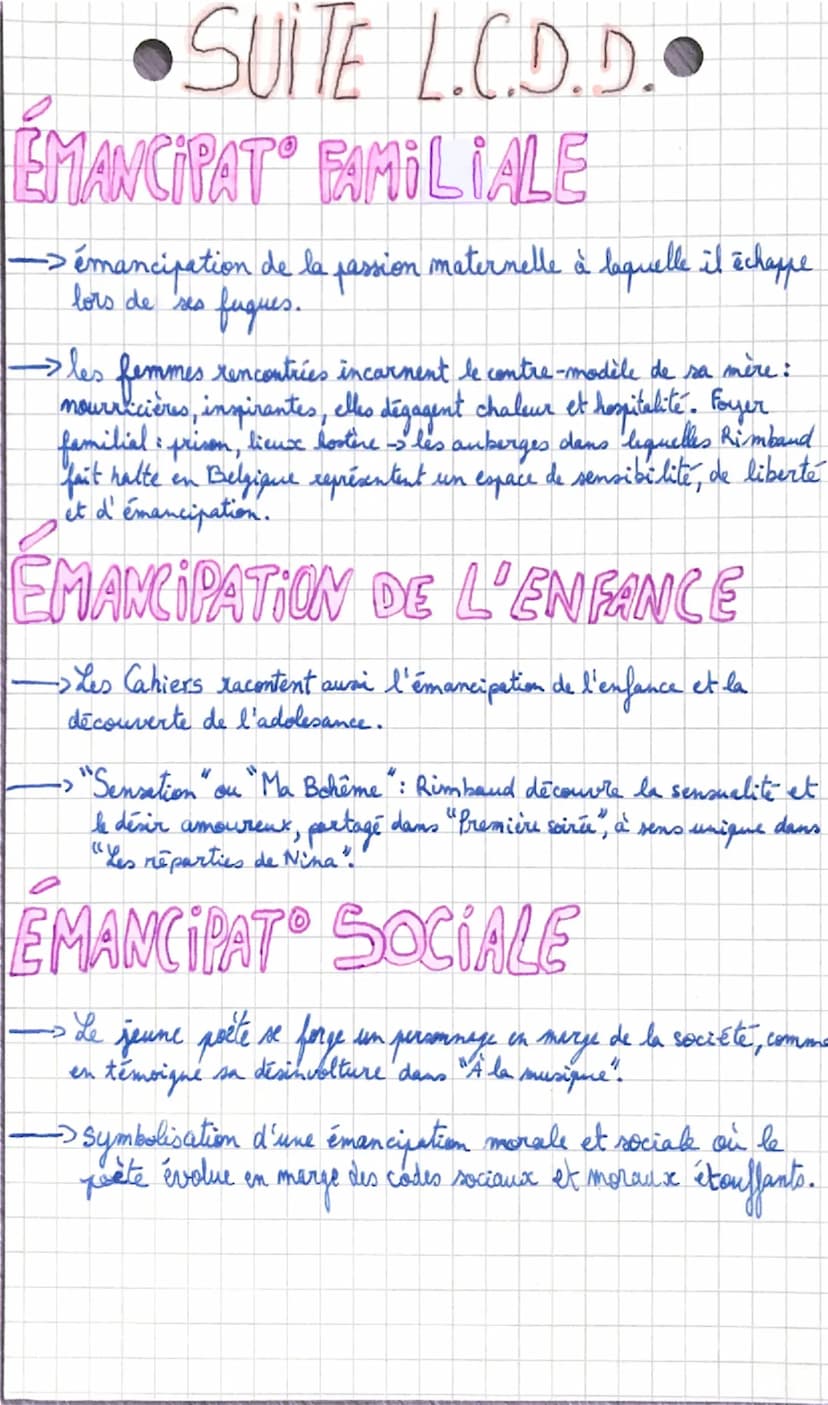 SUITE L.C.D.D.
ÉMANCIPAT° FAMILIALE
→ émancipation de la passion maternelle à laquelle il échappe
lors de ses fugues.
→ les femmes rencontrées incarnent le contre-modèle de sa mère :
nourricières, inspirantes, elles dégagent chaleur et hospitalité. Foyer
familial : prison, lieux -> les auberges dans lequelles Rimbaud
fait halte en Belgique représentent un espace de sensibilité, de liberté
et d'émancipation.
ÉMANCIPATION DE L'ENFANCE
→ Les Cahiers racontent aussi l'émancipation de l'enfance et la
découverte de l'adolesance.
→ "Sensation" ou "Ma Bohême" : Rimbaud découvre la sensualité et
le désir amoureux, partagé dans "Première soirée", à sens unique dans
"Les réparties de Nina".
ÉMANCIPAT° SOCIALE
→ Le jeune poète se forge un personnage en marge de la société, comme
en témoigne sa désinvolture dans "À la musique".
→ symbolisation d'une émancipation morale et sociale où le
poète évolue en marge des codes sociaux et moraux étouffants.